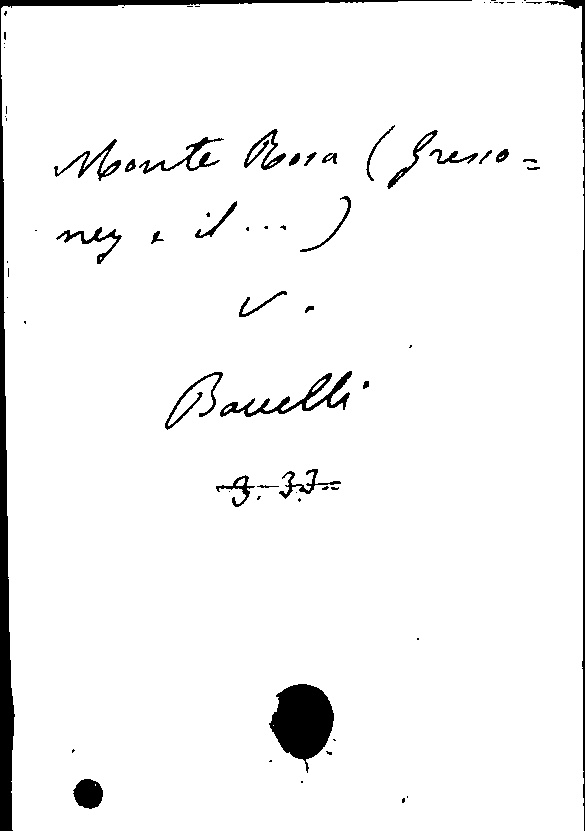 Monte Rosa (Gresso=
ney e il ...)
v.
Bonelli
3. 33=